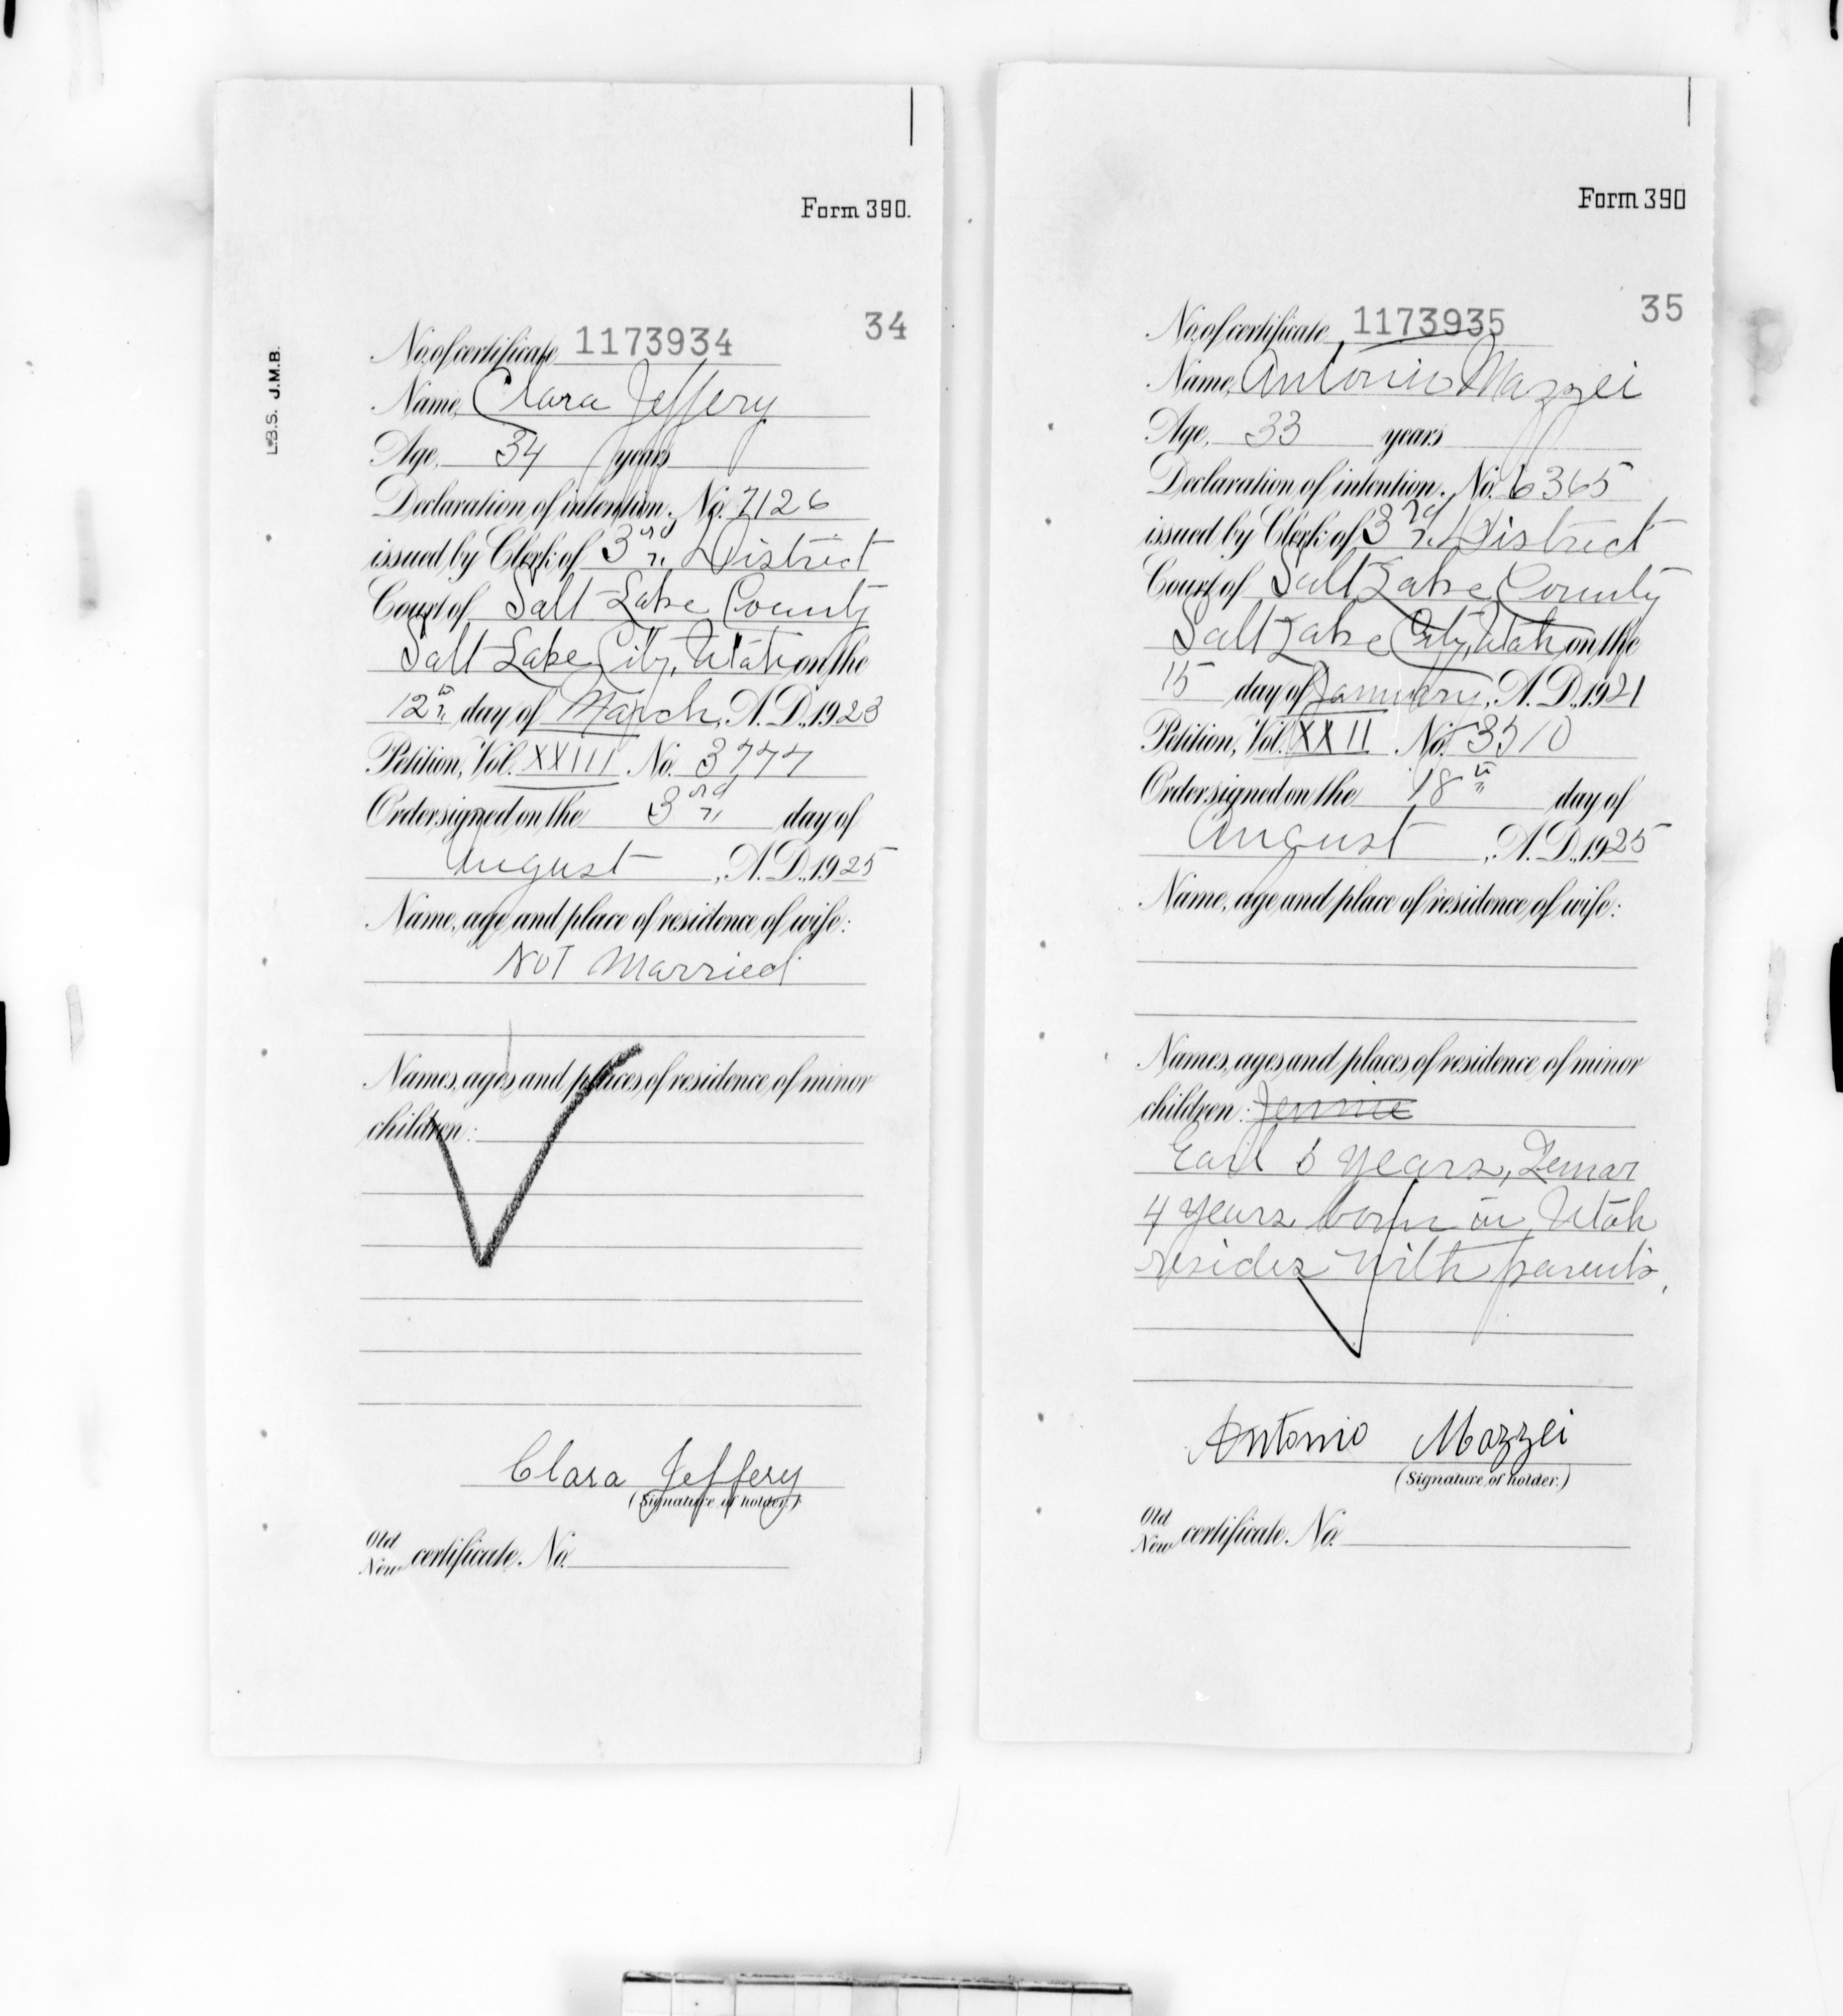 L.B.S. J.M.B.
Form 390.
34
No. of certificate 1173934
Name, Clara Jeffery
Age, 34 years
Declaration of intention, No. 7126
issued by Clerk of 3rd District
Court of Salt Lake County
Salt Lake City, Utah on the
12th day of March, A.D., 1923
Petition, Vol. XXIII No. 3777
Order signed on the 3rd day of
August, A.D., 1925
Name, age and place of residence of wife:
Not Married
Names, ages and places of residence of minor
children:
Clara Jeffery
(Signature of holder.)
Old
New certificate No.
Form 390
35
No. of certificate 1173935
Name, Antonio Mazzei
Age, 33 years
Declaration of intention, No. 6365
issued by Clerk of 3rd District
Court of Salt Lake County
Salt Lake City, Utah on the
15 day of January, A.D., 1921
Petition, Vol. XXII No. 3510
Order signed on the 18th day of
August, A.D., 1925
Name, age and place of residence of wife:
Names, ages and places of residence of minor
children: Jennie
Earl 6 years, Lemar
4 years born in Utah
resides with parents.
Antonio Mazzei
(Signature of holder.)
Old
New certificate No.